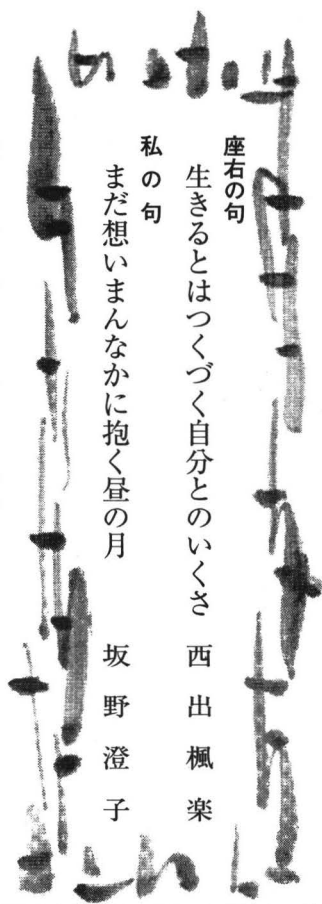 座右の句
生きるとはつくづく自分とのいくさ 西出楓楽
私の句
まだ想いまんなかに抱く昼の月 坂野澄子